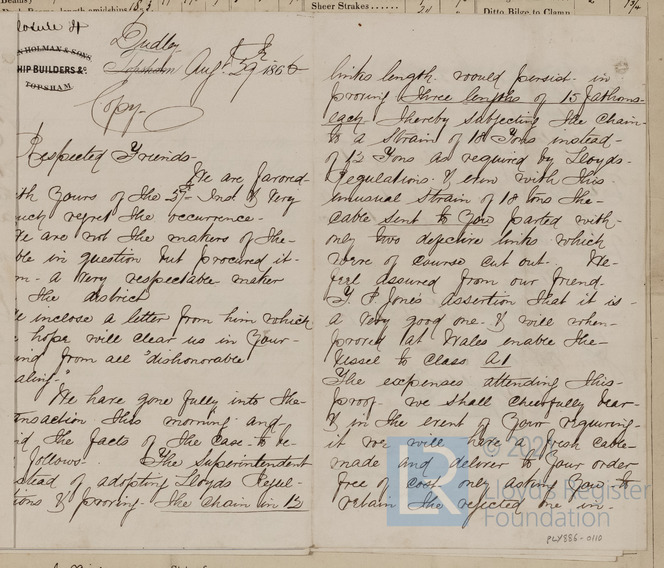 Sheer Strakes......
Ditto Bilge to Clamp
closure H
N HOLMAN & SONS
HIP BUILDERS &c
TOPSHAM
Dudley
Topsham Aug. 29 1866
Copy
Respected Friends
We are favored
th Yours of the 27th Inst & very
uch regret the occurrence.
We are not the makers of the
ble in question but procured it
m a very respectable maker
the district
e inclose a letter from him which
hope will clear us in Your
ind from all "dishonorable
aling"
We have gone fully into the
ansaction this morning and
d the facts of the case to be
follows. The Superintendent
stead of adopting Lloyds Regul-
ions & proving the chain in 12
links length would persist in
proving three lengths of 15 fathoms
each thereby subjecting the chain
to a strain of 18 Tons instead
of 12 Tons as required by Lloyds
Regulations & even with this
unusual strain of 18 tons the
cable sent to You parted with
only two defective links which
were of course cut out. We
feel assured from our friend
Y P Jones assertion that it is
a very good one & will when
proved at Wales enable the
vessel to class A1
The expenses attending this
proof we shall cheerfully bear
& in the event of Your requiring
it we will have a fresh cable
made and deliver to Your order
free of cost only asking You to
retain the rejected one in
LR
© 202
Lloyd's Register
Foundation
PLY886-0110